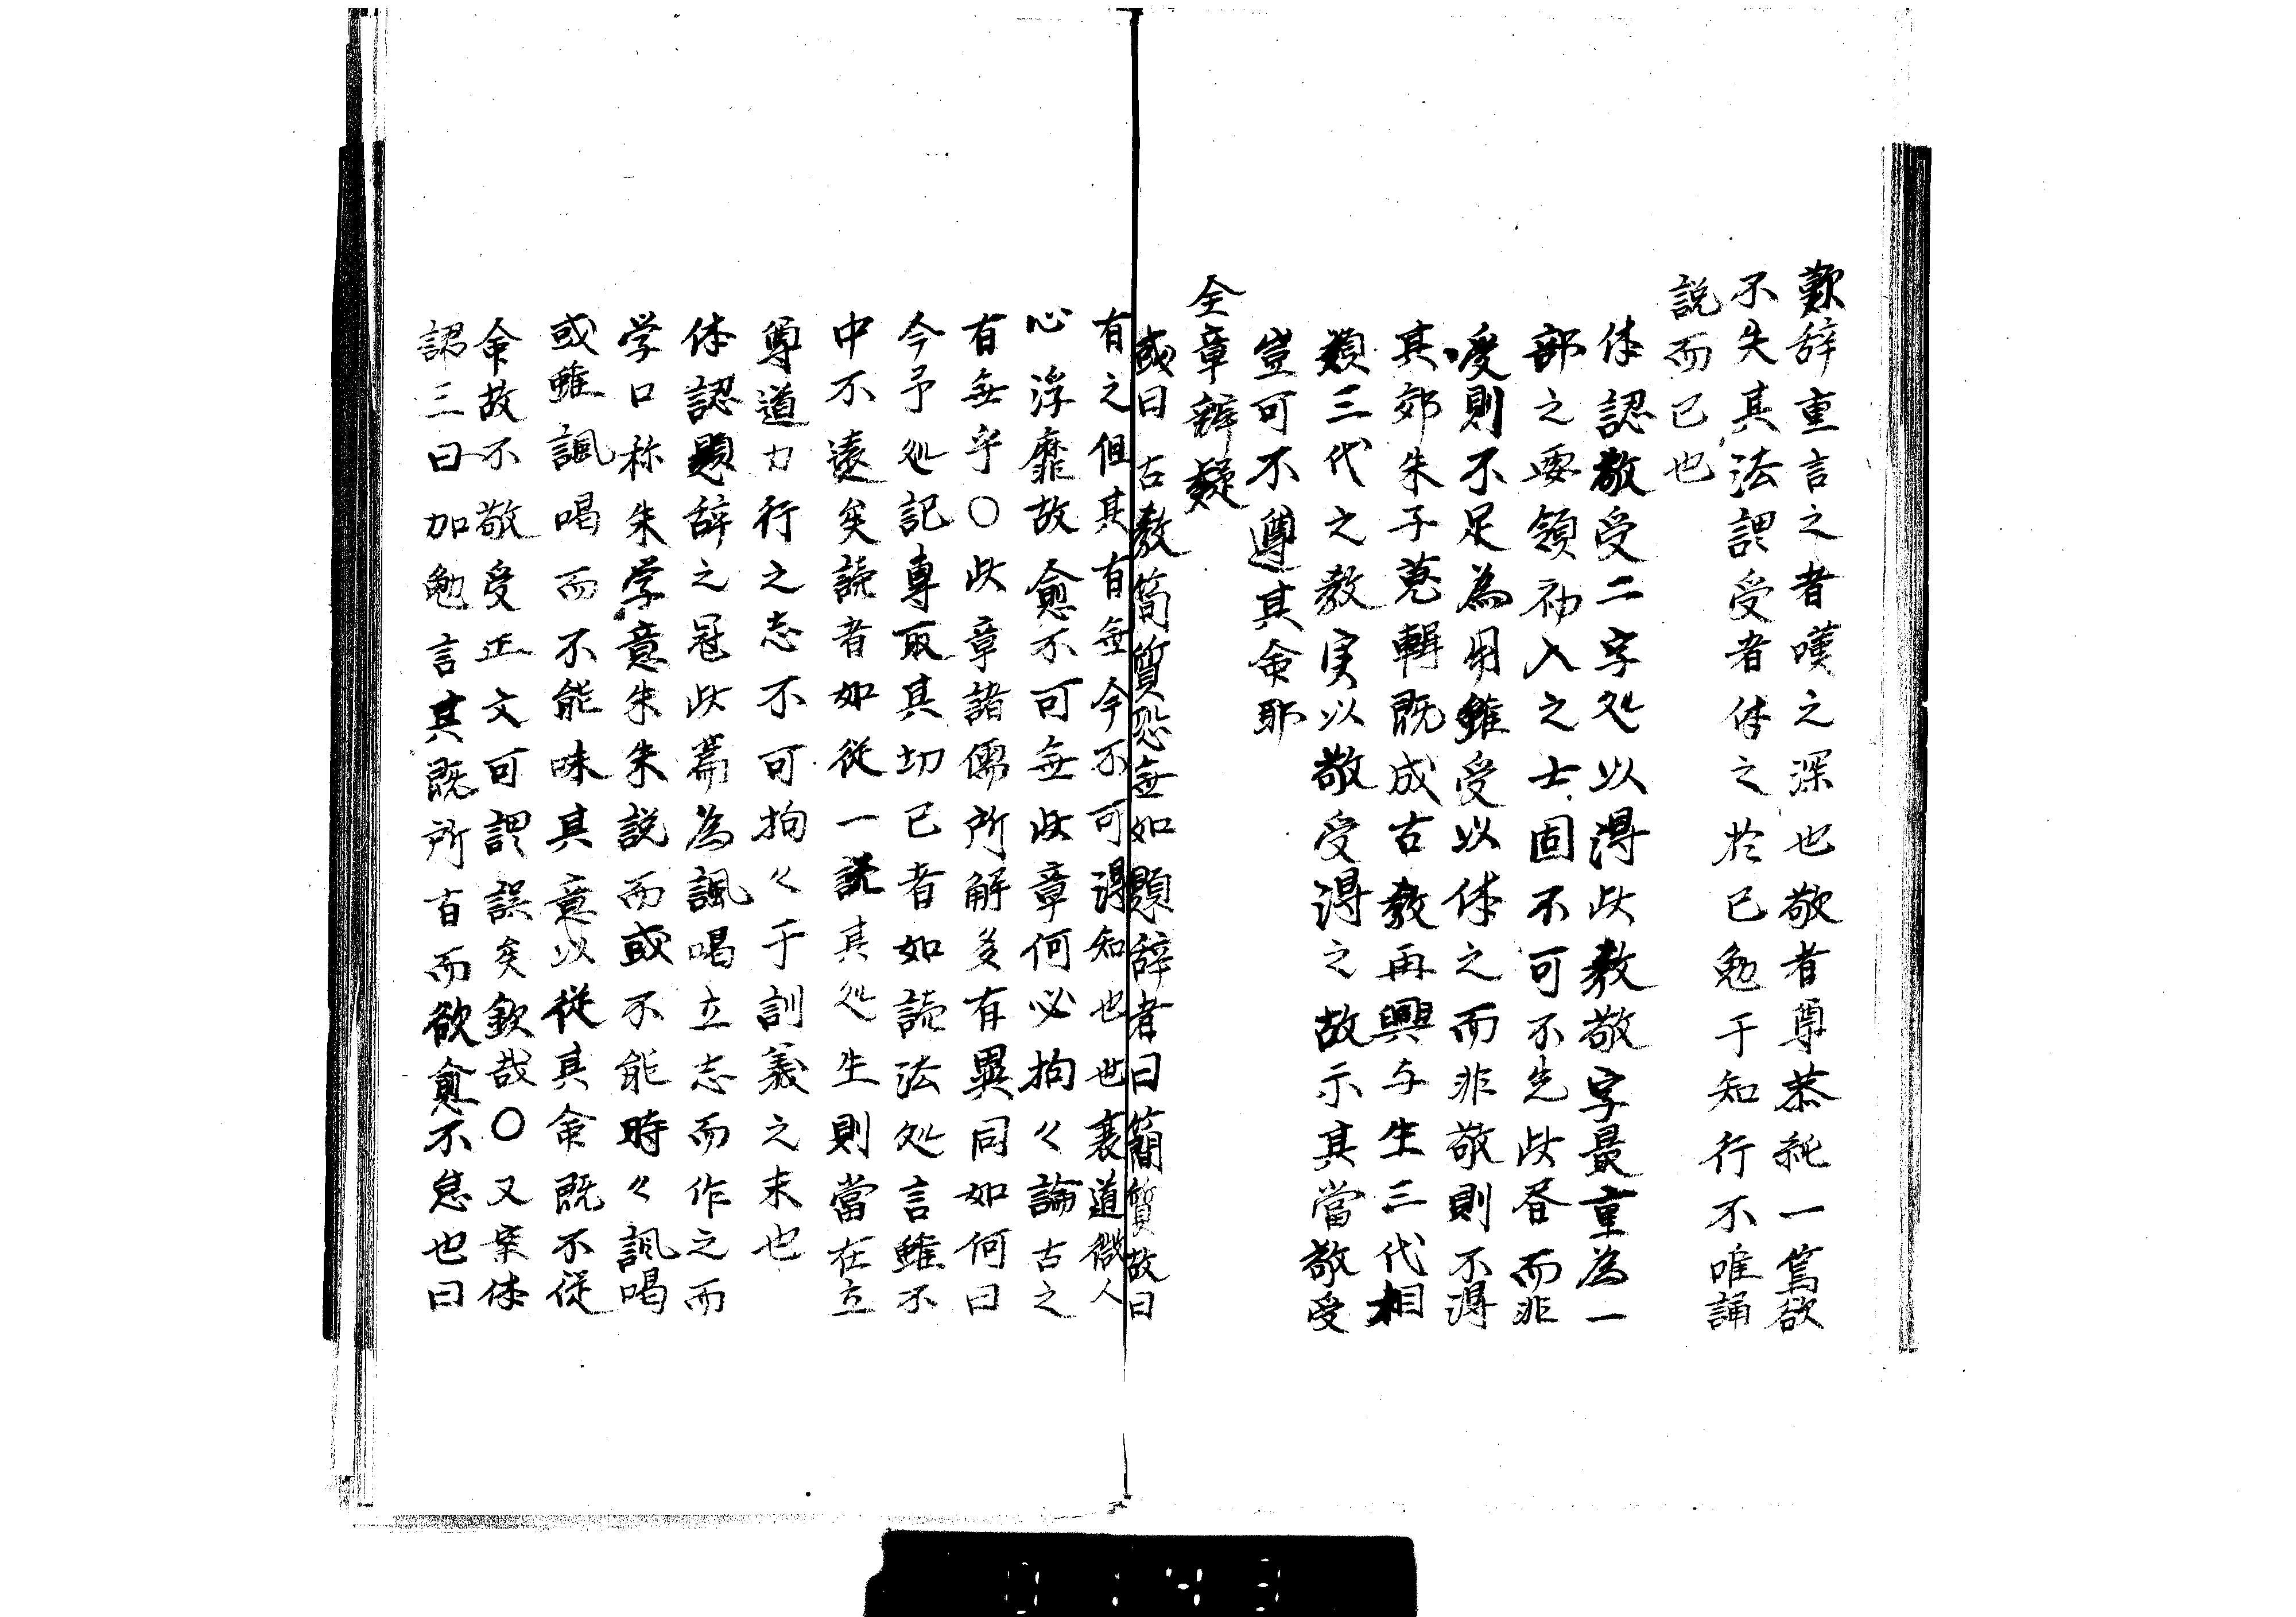 歎辞重言之者嘆之深也敬者尊恭純一篤欲
不失其法謂受者体之於已勉于知行不唯誦
説而已也
体認敬受二字処以得此教敬字最重為一
部之要領初入之士固不可不先此昏而非
受則不足為用雖受以体之而非敬則不得
其郊朱子蒐輯既成古教再興与生三代相
類三代之教実以敬受得之故示其當敬受
豈可不尊其命耶
全章辨疑
或曰古教簡質恐無如題辞者曰簡質故曰
有之但其有無今不可得知也世衰道微人
心浮靡故愈不可無此章何必拘々論古之
有無乎〇此章諸儒所解多有異同如何曰
今予処記專取其切已者如読法処言雖不
中不遠矣読者如從一説其処生則當在立
尊道力行之志不可拘々于訓義之末也
体認題辞之冠此篇為諷喝立志而作之而
学口称朱学意朱朱説而或不能時々諷喝
或雖諷喝而不能味其意以從其命既不従
命故不敬受正文可謂誤矣欽哉〇又案体
認三曰加勉言其既所百而欲愈不怠也曰
0143